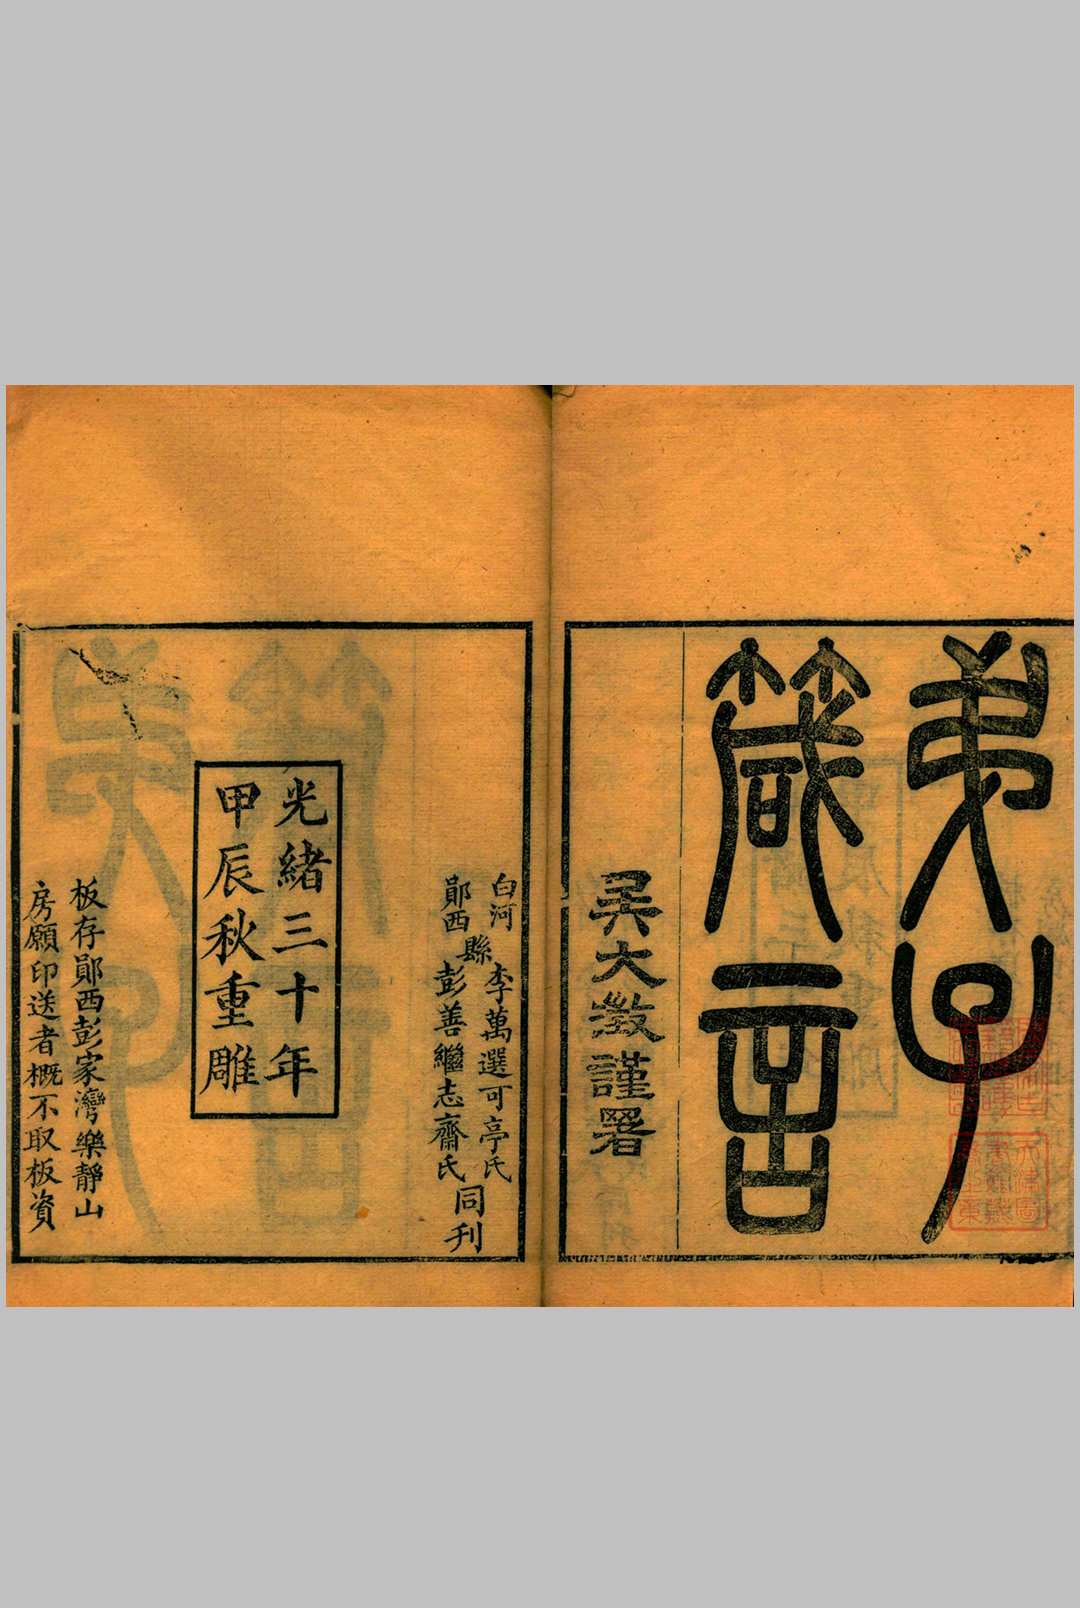 弟子
箴言
吳大澂謹署
白河
鄖西
縣
李萬選可亭氏
彭善繼志齋氏
同刋
光緒三十年
甲辰秋重雕
板存鄖西彭家灣樂靜山
房願印送者概不取板資